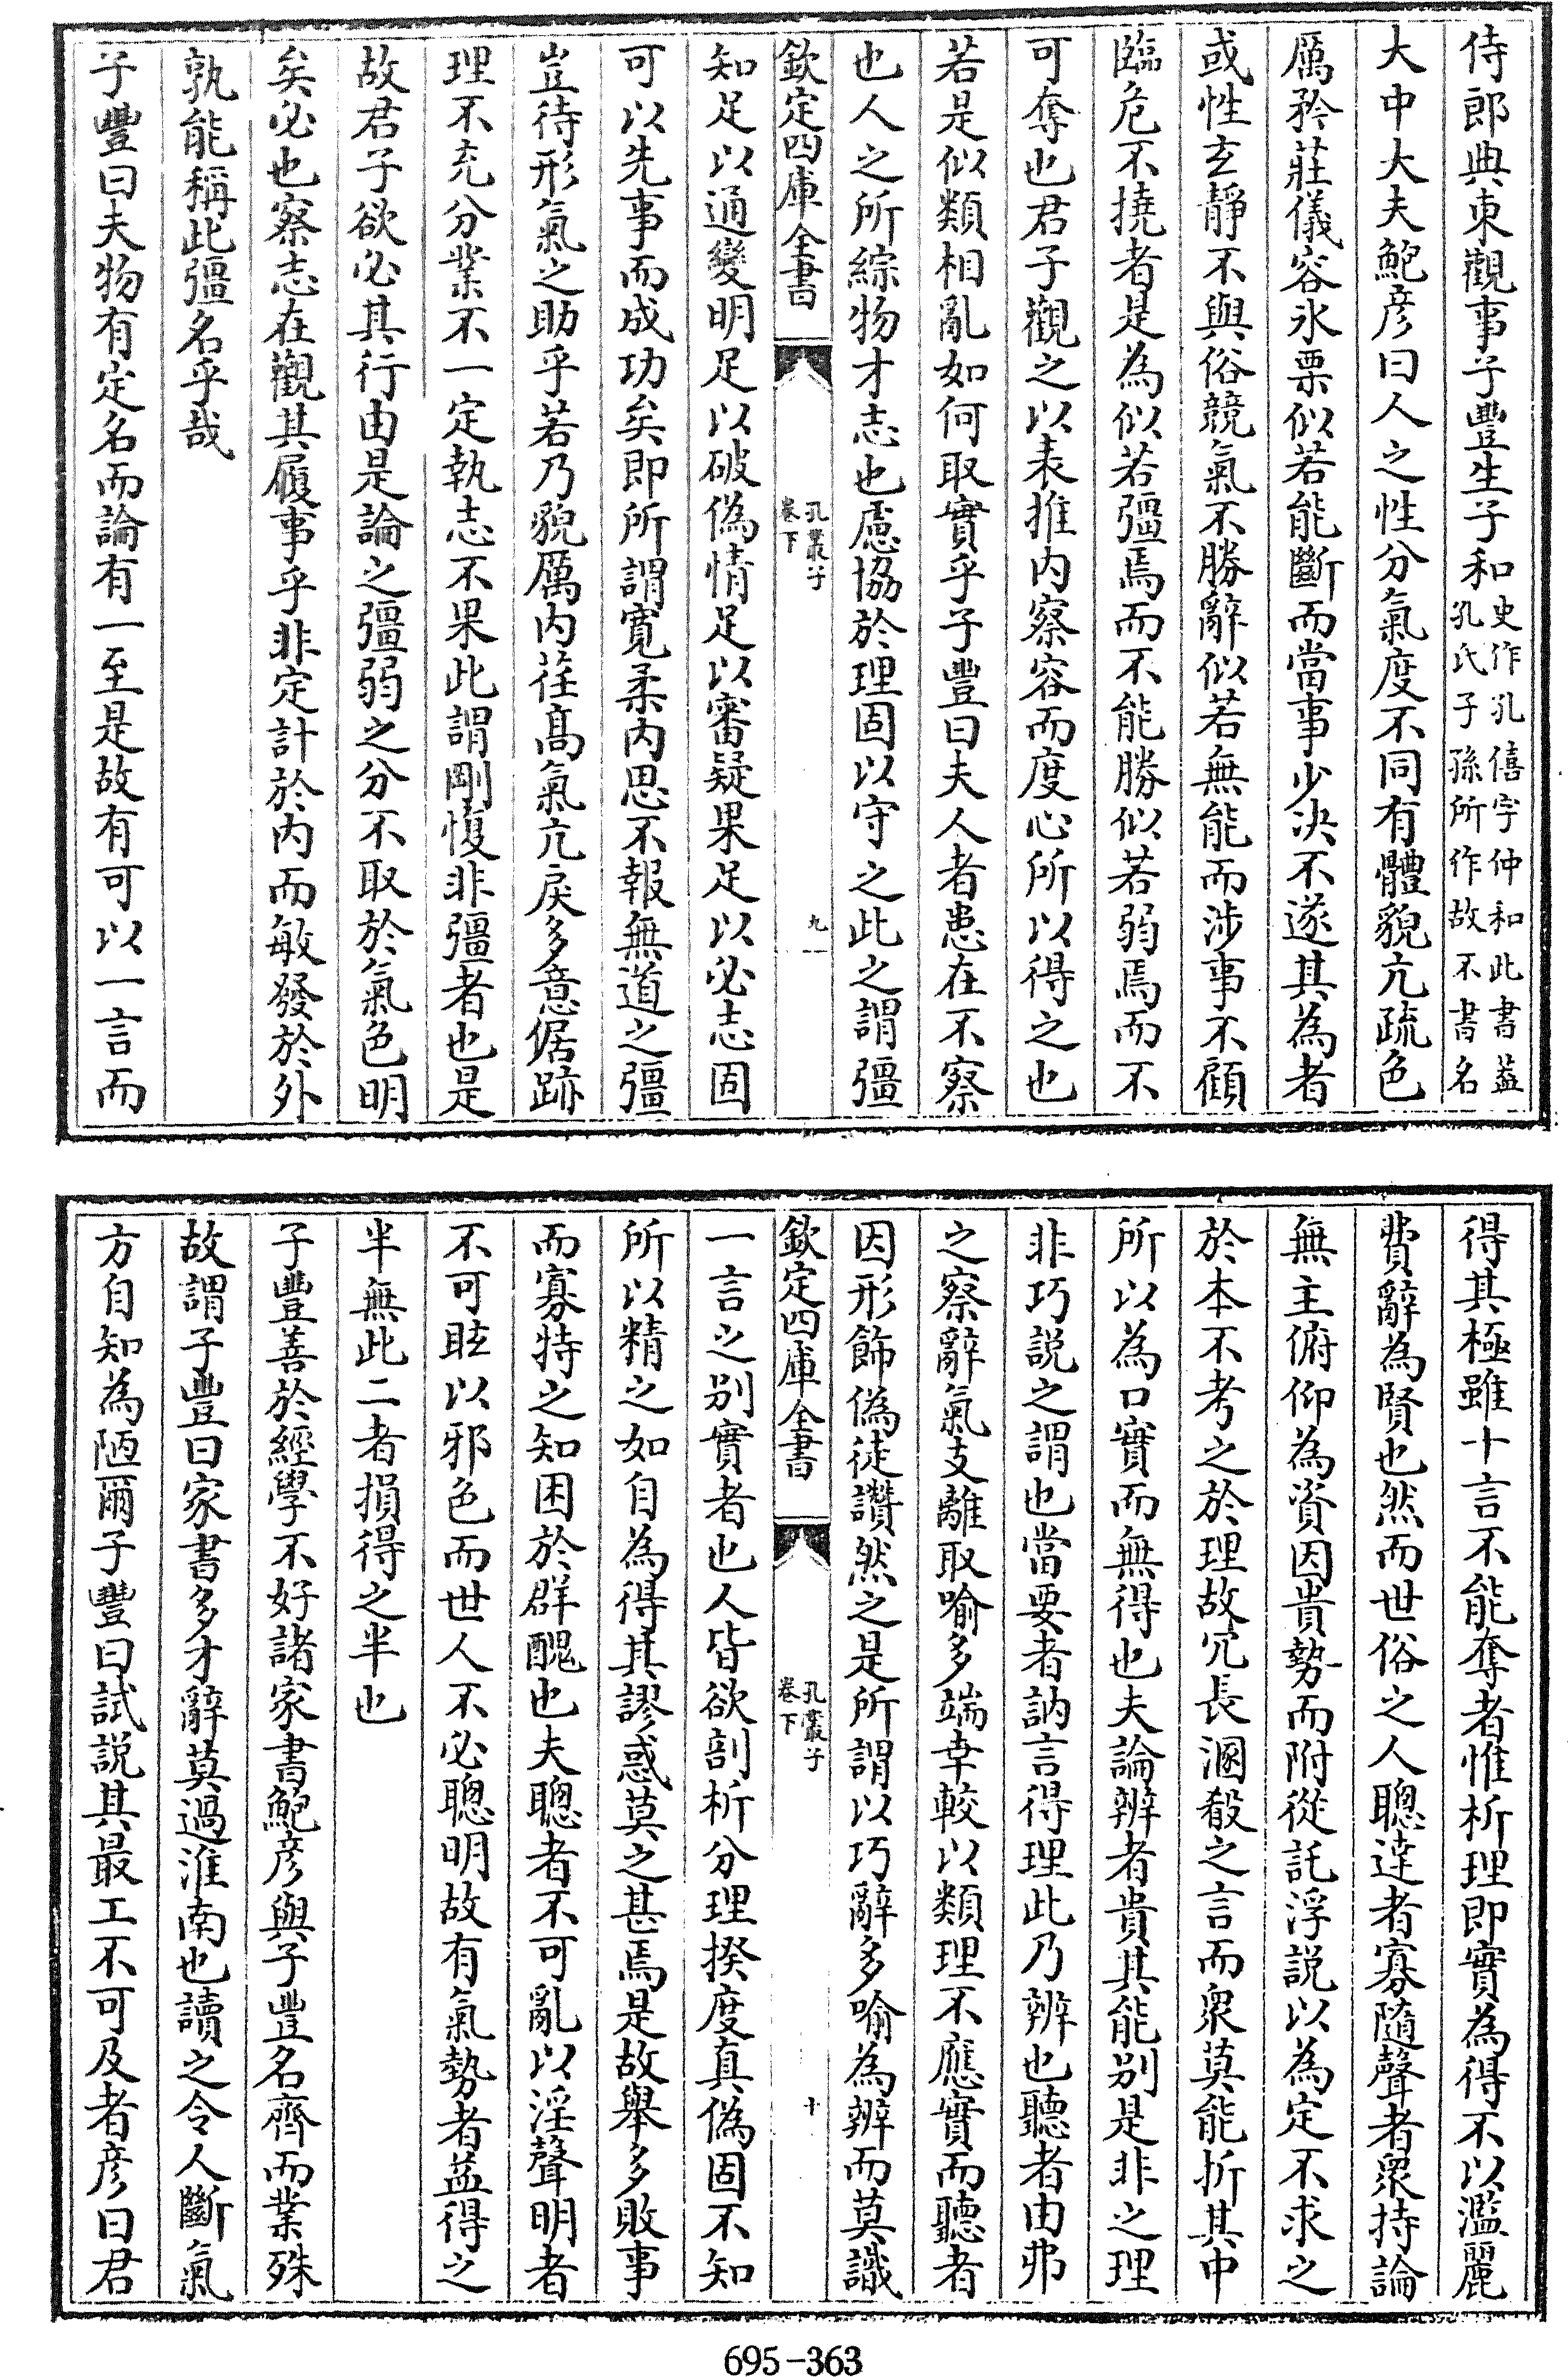 侍郎典東觀事子豐生子和史作孔僖字仲和此書蓋孔氏子孫所作故不書名
大中大夫鮑彦曰人之性分氣度不同有體貌亢疏色
厲矜莊儀容氷栗似若能斷而當事少決不遂其為者
或性玄靜不與俗競氣不勝辭似若無能而渉事不顧
臨危不撓者是為似若彊焉而不能勝似若弱焉而不
可奪也君子觀之以表推内察容而度心所以得之也
若是似類相亂如何取實乎子豐曰夫人者患在不察
也人之所綜物才志也慮協於理固以守之此之謂彊
欽定四庫全書
孔叢子
卷下
九
知足以通變明足以破偽情足以審疑果足以必志固
可以先事而成功矣即所謂寛柔内思不報無道之彊
豈待形氣之助乎若乃貌厲内荏高氣亢戾多意倨跡
理不充分業不一定執志不果此謂剛愎非彊者也是
故君子欲必其行由是論之彊弱之分不取於氣色明
矣必也察志在觀其履事乎非定計於内而敏發於外
孰能稱此彊名乎哉
子豐曰夫物有定名而論有一至是故有可以一言而
得其極雖十言不能奪者惟析理即實為得不以濫麗
費辭為賢也然而世俗之人聰達者寡隨聲者衆持論
無主俯仰為資因貴勢而附從託浮説以為定不求之
於本不考之於理故冗長溷殽之言而衆莫能折其中
所以為口實而無得也夫論辨者貴其能别是非之理
非巧説之謂也當要者訥言得理此乃辨也聽者由弗
之察辭氣支離取喻多端幸較以類理不應實而聽者
因形飾偽徒讚然之是所謂以巧辭多喻為辨而莫識
欽定四庫全書
孔叢子
卷下
十
一言之别實者也人皆欲剖析分理揆度真偽固不知
所以精之如自為得其謬惑莫之甚焉是故舉多敗事
而寡特之知困於群醜也夫聰者不可亂以淫聲明者
不可眩以邪色而世人不必聰明故有氣勢者益得之
半無此二者損得之半也
子豐善於經學不好諸家書鮑彦與子豐名齊而業殊
故謂子豐曰家書多才辭莫過淮南也讀之令人斷氣
方自知為陋爾子豐曰試説其最工不可及者彦曰君
695-363